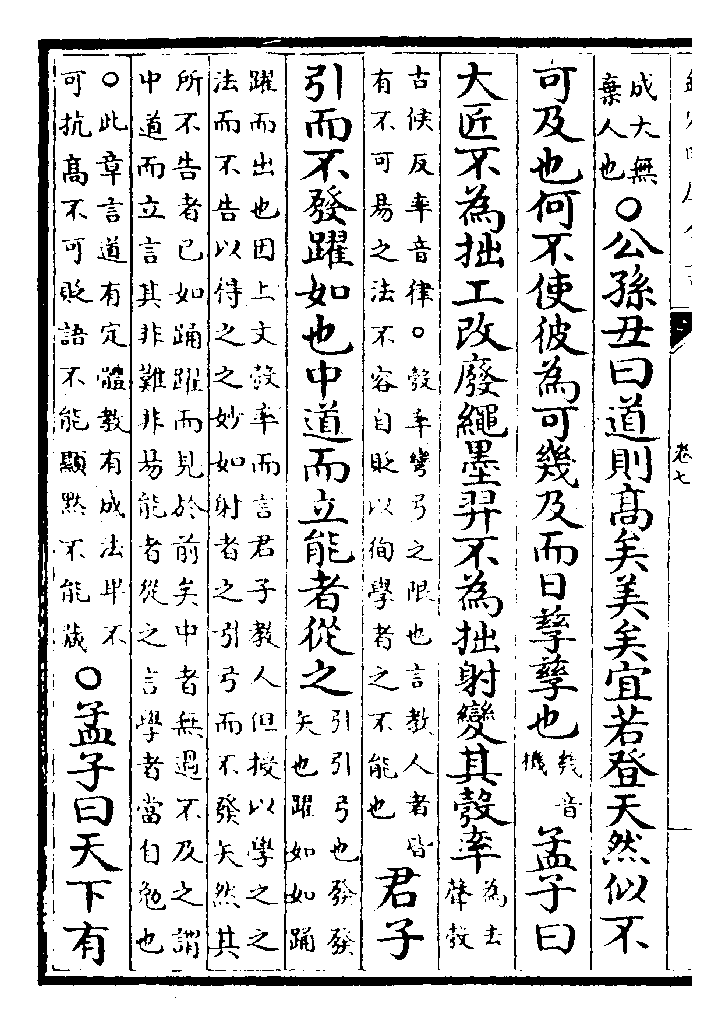 成大無
棄人也
○公孫丑曰道則髙矣美矣宜若登天然似不
可及也何不使彼為可幾及而日孳孳也
幾音
機
孟子曰
大匠不為拙工改廢繩墨羿不為拙射變其彀率
為去
聲彀
古候反率音律○彀率彎弓之限也言教人者皆
有不可易之法不容自貶以徇學者之不能也
君子
引而不發躍如也中道而立能者從之
引引弓也發發
矢也躍如如踊
躍而出也因上文彀率而言君子教人但授以學之之
法而不告以得之之妙如射者之引弓而不發矢然其
所不告者已如踊躍而見於前矣中者無過不及之謂
中道而立言其非難非易能者從之言學者當自勉也
○此章言道有定體教有成法卑不
可抗髙不可貶語不能顯黙不能藏
○孟子曰天下有
卷七